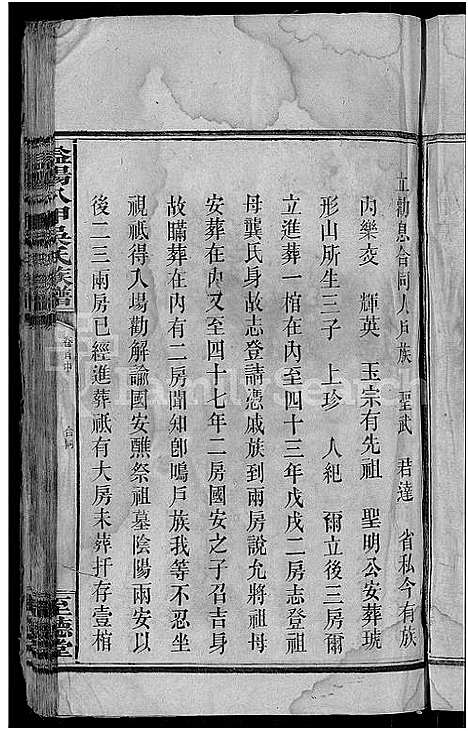 立勸息合同人戶族 聖武 若達 省私今有族
內樂交 輝英 玉宗有先祖 聖明公安葬琥
形山所生三子 上珍 人紀 爾立後三房爾
立進葬一棺在內至四十三年戊戌二房志登祖
母龔氏身故志登請憑戚族到兩房說允將祖母
安葬在內又至四十七年二房國安之子召吉身
故瞞葬在內有二房聞知卽鳴戶族我等不忍坐
視祇得入場勸解諭國安醮祭祖墓陰陽兩安以
後二三兩房已經進葬祇有大房未葬扦存壹棺
益陽八甲吳氏族譜
卷首中
合同
至德堂
FamilySearch